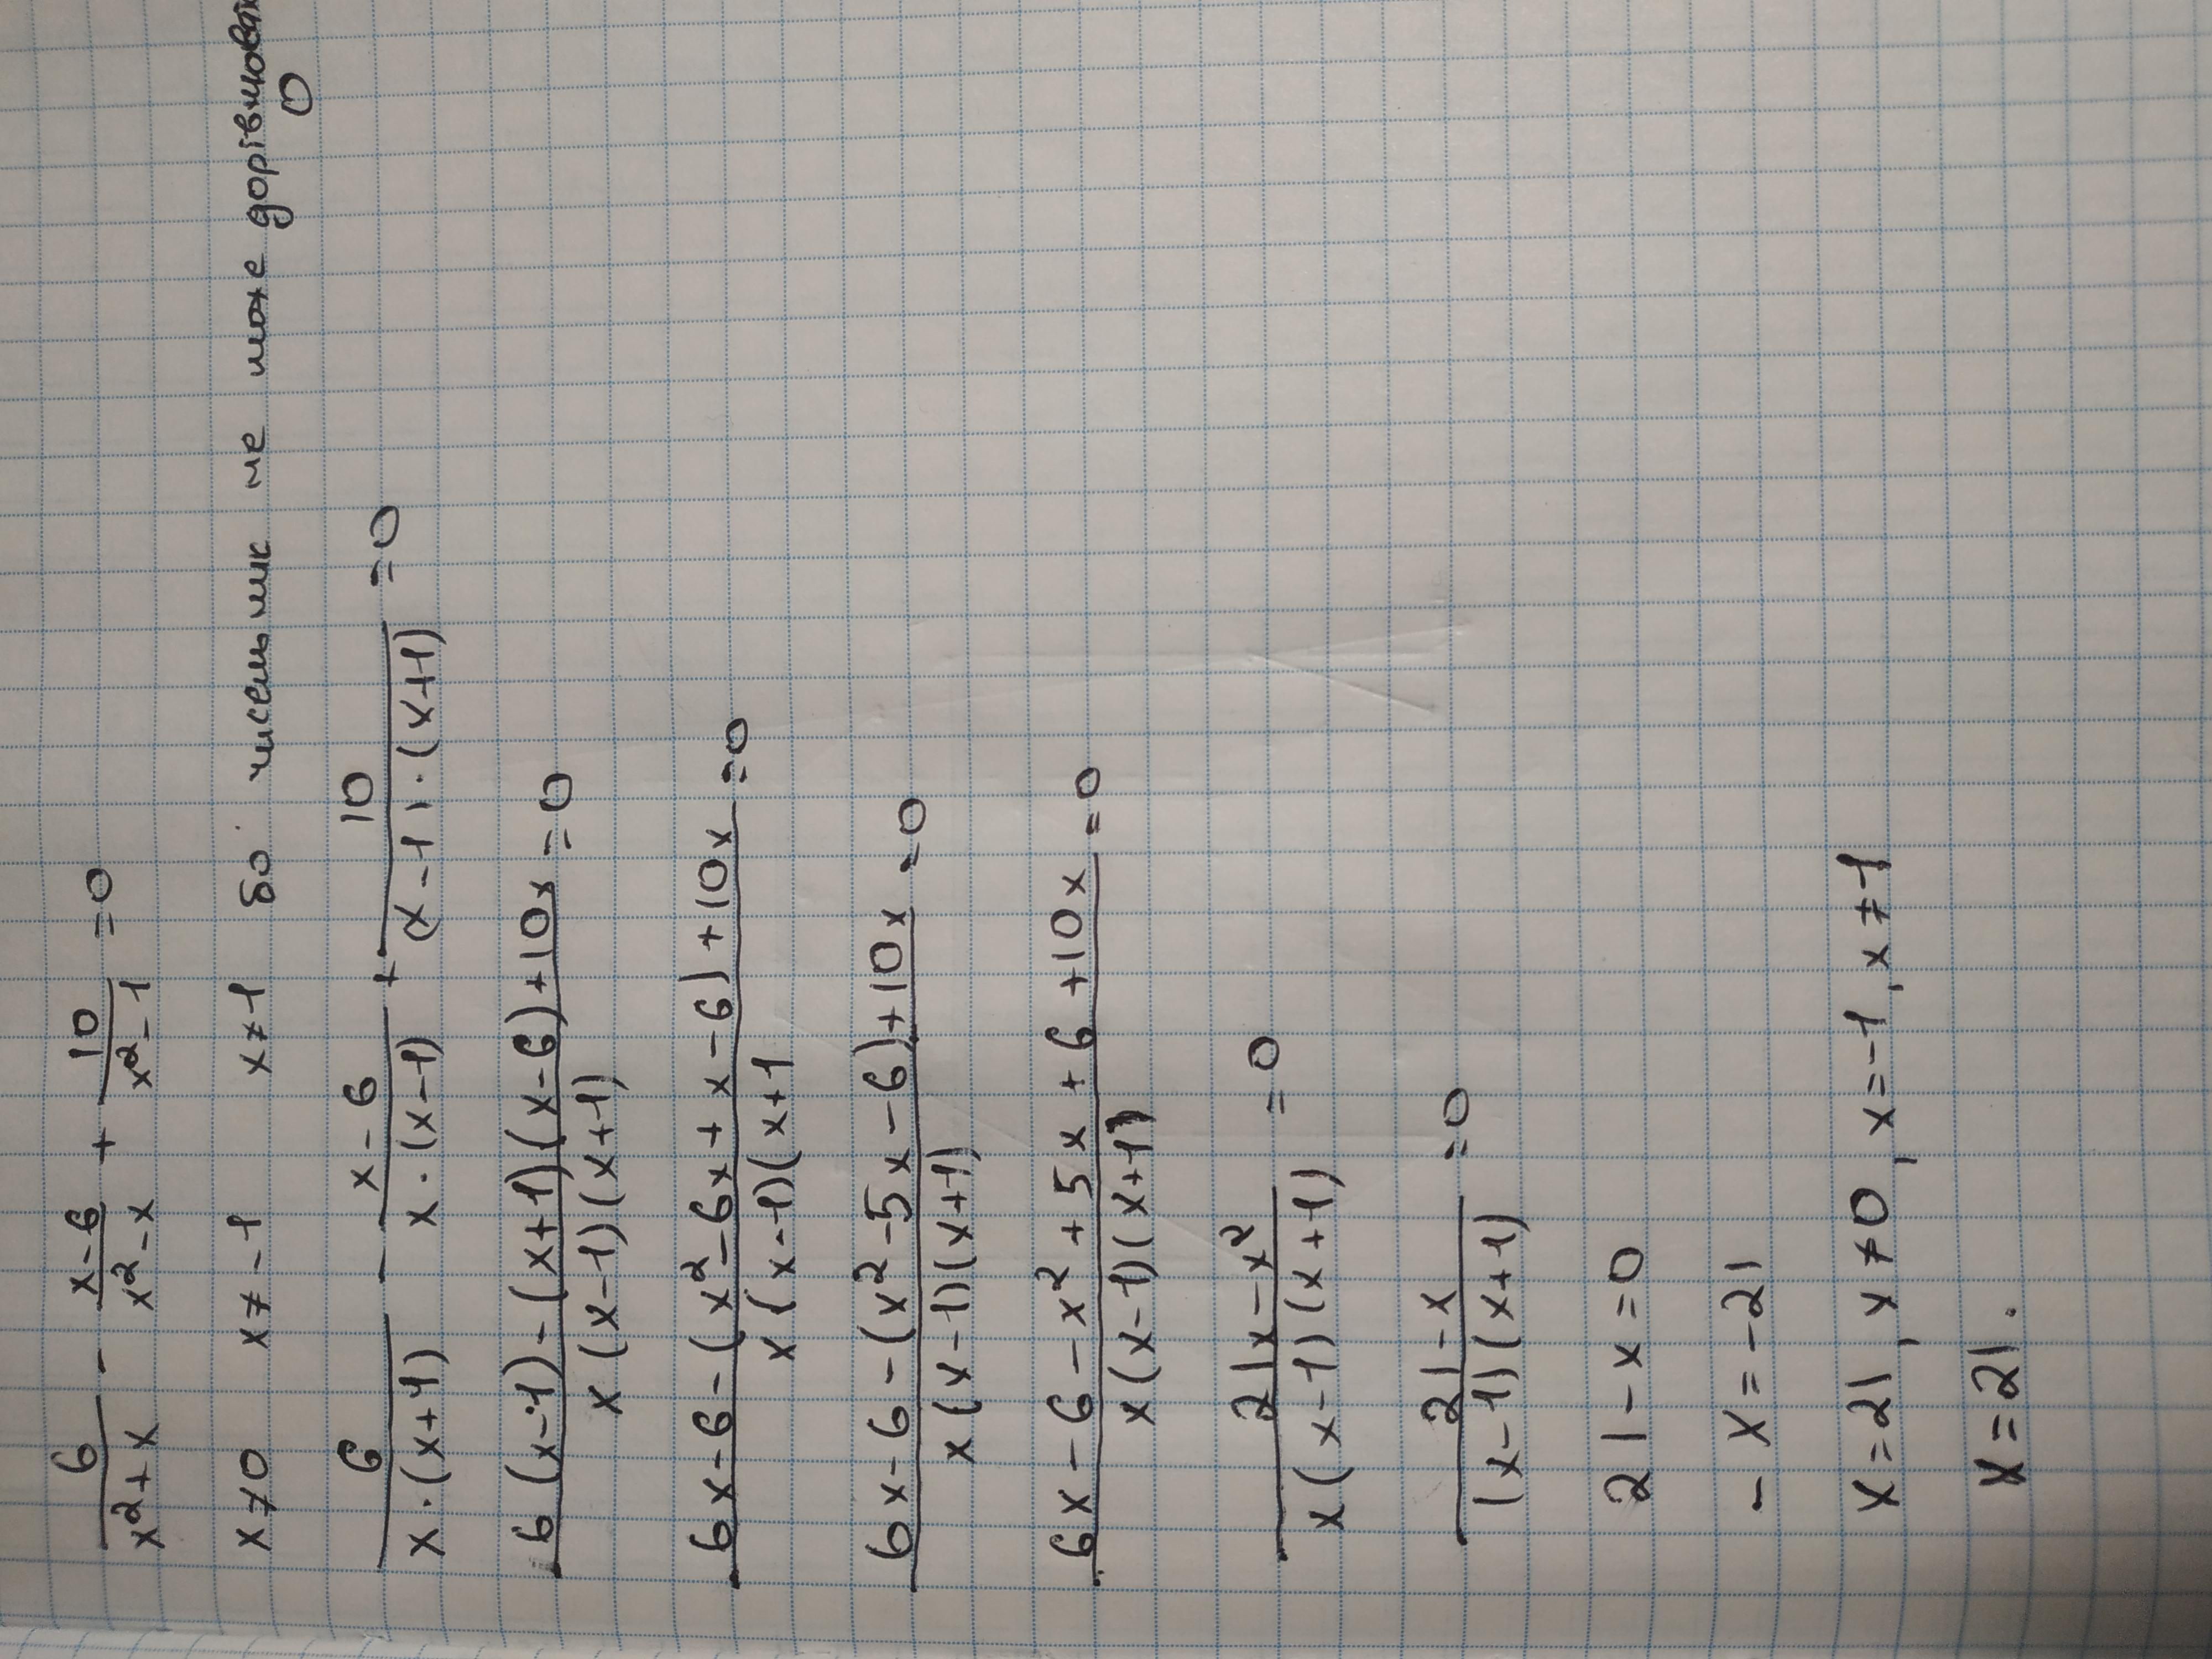 6/(x²+x) - (x-6)/(x²-x) + 10/(x²-1) =0
x≠0 x≠-1 x≠1 бо чисельник не може дорівнювати
0
6/(x·(x+1)) - (x-6)/(x·(x-1)) + 10/((x-1)·(x+1)) =0
(6(x-1)-(x+1)(x-6)+10x)/(x·(x-1)(x+1)) =0
(6x-6-(x²-6x+x-6)+10x)/(x(x-1)(x+1) =0
(6x-6-(x²-5x-6)+10x)/(x(x-1)(x+1)) =0
(6x-6-x²+5x+6+10x)/(x(x-1)(x+1)) =0
(21x-x²)/(x(x-1)(x+1)) =0
(21-x)/((x-1)(x+1)) =0
21-x=0
-x=-21
x=21, x≠0, x=-1, x≠1
x=21.